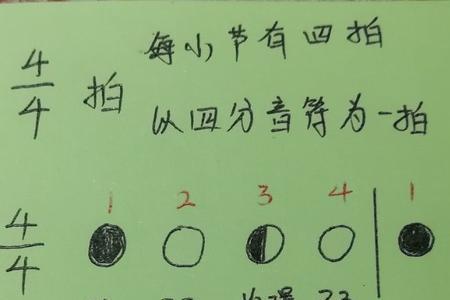 4/4 拍 每小节有四拍
以四分音符为一拍
1 2 3 4 1
4/4